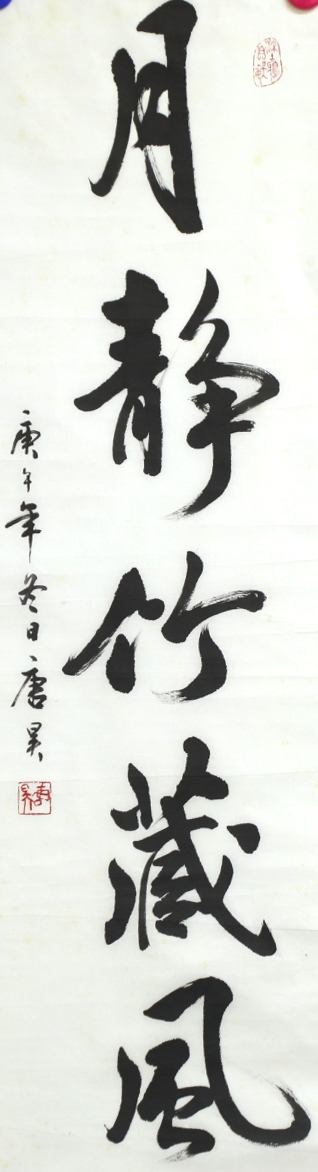 月靜竹藏風
庚午年冬日唐昊